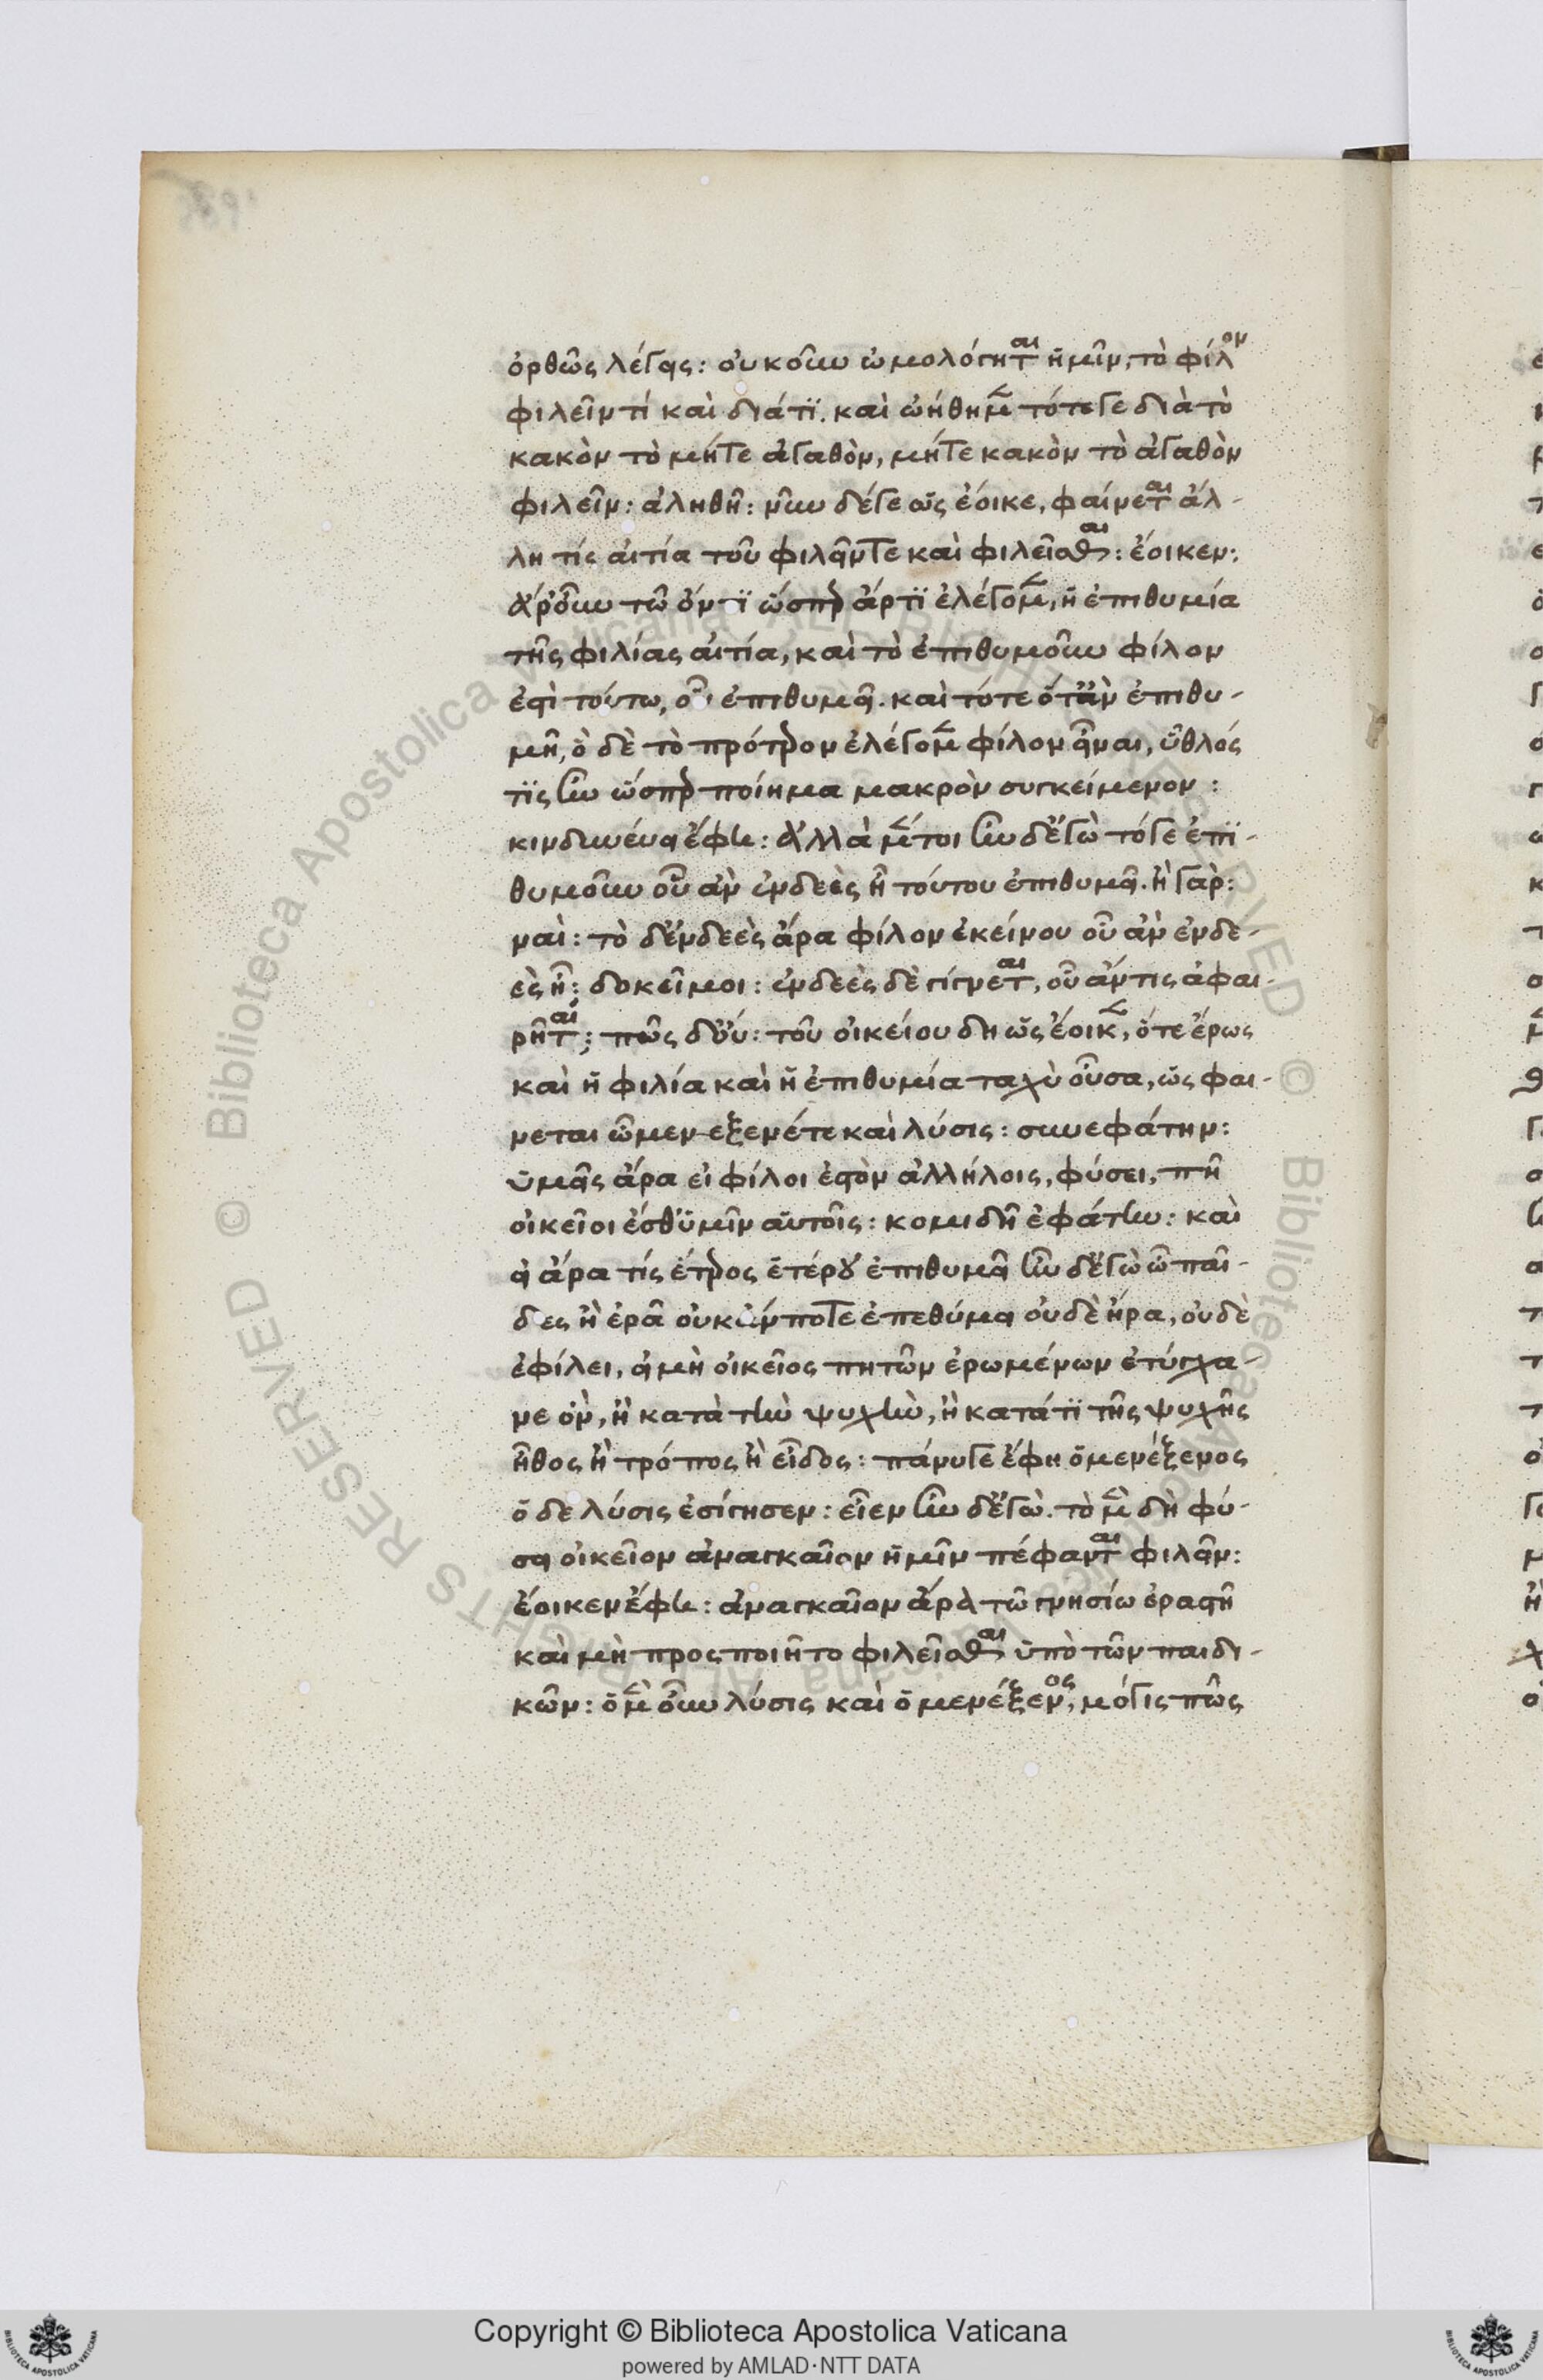 ὀρθῶς λέγεις: οὐκοῦν ὡμολόγηται ἡμῖν, τὸ φίλον
φιλεῖν τί καὶ διάτϊ. καὶ ὠήθημεν τότε γε διὰ τὸ
κακὸν τὸ μήτε ἀγαθὸν, μήτε κακὸν τὸ ἀγαθὸν
φιλεῖν: ἀληθῆ: νῦν δέ γε ὡς ἔοικε, φαίνεται ἄλ-
λη τίς αἰτία τοῦ φιλεῖν τε καὶ φιλεῖσθαι: ἔοικεν:
ἆρ' οὖν τῶ ὄντϊ ὥσπερ ἄρτϊ ἐλέγομεν, ἡ ἐπιθυμία
τῆς φιλίας αἰτία, καὶ τὸ ἐπιθυμοῦν φίλον
ἐστὶ τούτω, οὗ ἐπιθυμεῖ. καὶ τότε ὅταν ἐπιθυ-
μῆ, ὃ δὲ τὸ πρότερον ἐλέγομεν φίλον εἶναι, ὕθλός
τϊς ἦν ὥσπερ ποίημα μακρὸν συγκείμενον:
κινδυνεύει ἔφη: ἀλλὰ μέντοι ἦν δ' ἐγὼ τό γε ἐπϊ-
θυμοῦν οὗ ἂν ἐνδεὲς ἦ τούτου ἐπιθυμεῖ. ἢ γάρ:
ναὶ: τὸ δ' ἐνδεὲς ἄρα φίλον ἐκείνου οὗ ἂν ἐνδε-
ὲς ἦ: δοκεῖ μοι: ἐνδεὲς δὲ γίγνεται, οὗ ἄν τις ἀφαι-
ρῆται; πῶς δ' οὔ: τοῦ οἰκείου δη ὡς ἔοικεν, ὅτε ἔρως
καὶ ἡ φιλία καὶ ἡ ἐπιθυμία ταχὺ οὖσα, ὡς φαι-
νεται ὦ μενεξενέ τε καὶ λύσις: συνεφάτην:
ὑμεῖς ἄρα εἰ φίλοι ἐστὸν ἀλλήλοις, φύσει, πῆ
οἰκεῖοι ἐσθ' ὑμῖν αὐτοῖς: κομιδῆ ἐφάτην: καὶ
εἰ ἄρα τίς ἕτερος ἑτέρου ἐπιθυμεῖ ἦν δ' ἐγὼ ὦ παῖ-
δες ἢ ἐρᾶ οὐκ ἄν ποτε ἐπεθύμει οὐδὲ ἤρα, οὐδὲ
ἐφίλει, εἰ μὴ οἰκεῖος πη τῶν ἐρωμένων ἐτύγχα-
νε ὂν, ἢ κατὰ τὴν ψυχὴν, ἢ κατά τϊ τῆς ψυχῆς
ἦθος ἢ τρόπος ἢ εἶδος: πάνυ γε ἔφη ὁ μενέξενος
ὁ δε λύσις ἐσίγησεν: εἶεν ἦν δ' ἐγὼ. τὸ μὲν δὴ φύ-
σει οἰκεῖον ἀναγκαῖον ἡμῖν πέφανται φιλεῖν:
ἔοικεν ἔφη: ἀναγκαῖον ἄρα τῶ γνησίω ἐραστῆ
καὶ μὴ προσποιήτο φιλεῖσθαι ὑπὸ τῶν παιδι-
κῶν: ὁ μὲν οὖν λύσις καὶ ὁ μενέξενος, μόγις πῶς
Copyright © Biblioteca Apostolica Vaticana
powered by AMLAD·NTT DATA